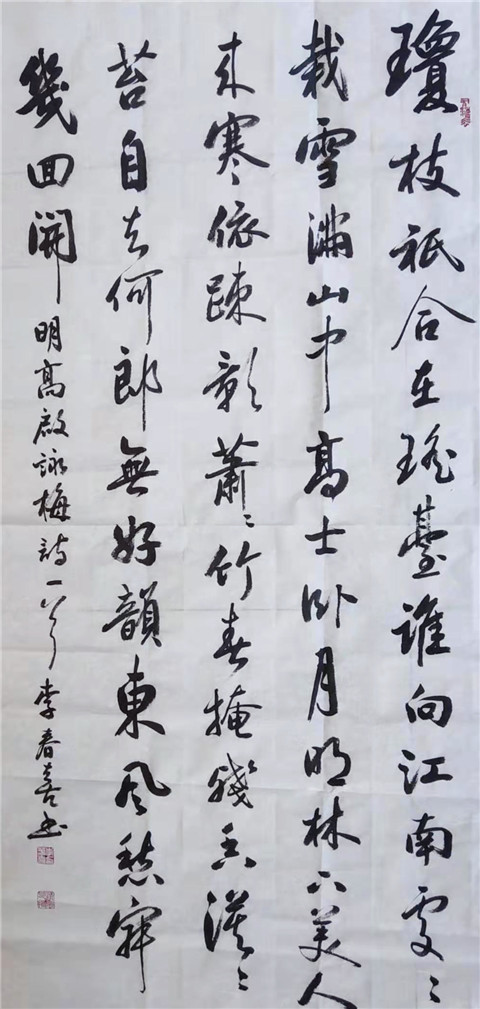 瓊枝祇合在瑤臺誰向江南處〻
栽雪滿山中高士卧月明林下美人
来寒依疎影蕭〻竹春掩殘香漠〻
苔自去何郎無好韻東風愁寂
幾回開 明高啟詠梅詩一首 李春喜书